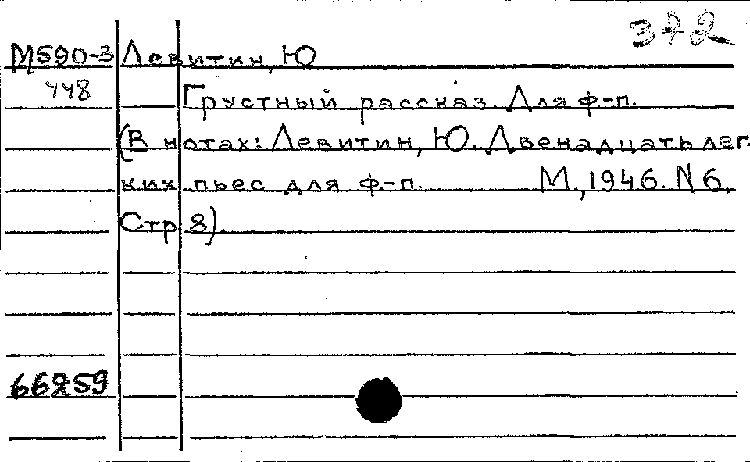 372
М590-3 Левитин, Ю
448 Грустный рассказ. Для ф-п.
(В нотах: Левитин, Ю. Двенадцать лег-
ких пьес для ф-п. М., 1946. N 6.
Стр 8).
66259